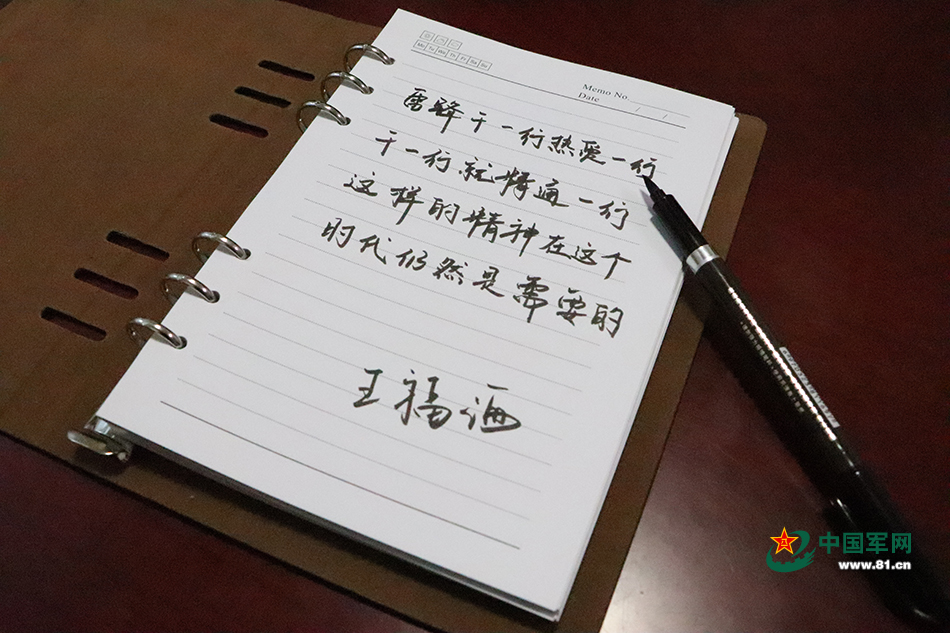 Mo Tu We Th Fr Sa Su
Memo No.
Date / /
雷锋干一行热爱一行
干一行就精通一行
这样的精神在这个
时代仍然是需要的
王福
中国军网
www.81.cn